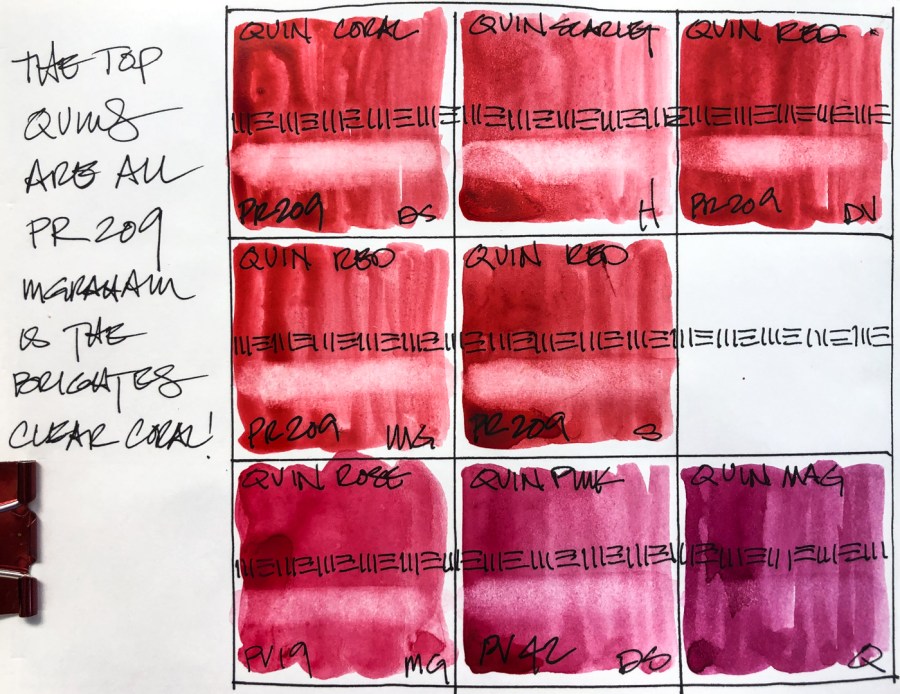 THE TOP
QUINS
ARE ALL
PR 209
MGRAHAM
IS THE
BRIGHTES
CLEAR CORAL!
QUIN CORAL
PR209 DS
QUIN SCARLET
H
QUIN RED
PR209 DV
QUIN RED
PR209 MG
QUIN RED
PR209 S
QUIN ROSE
PV19 MG
QUIN PINK
PV42 DS
QUIN MAG
Q